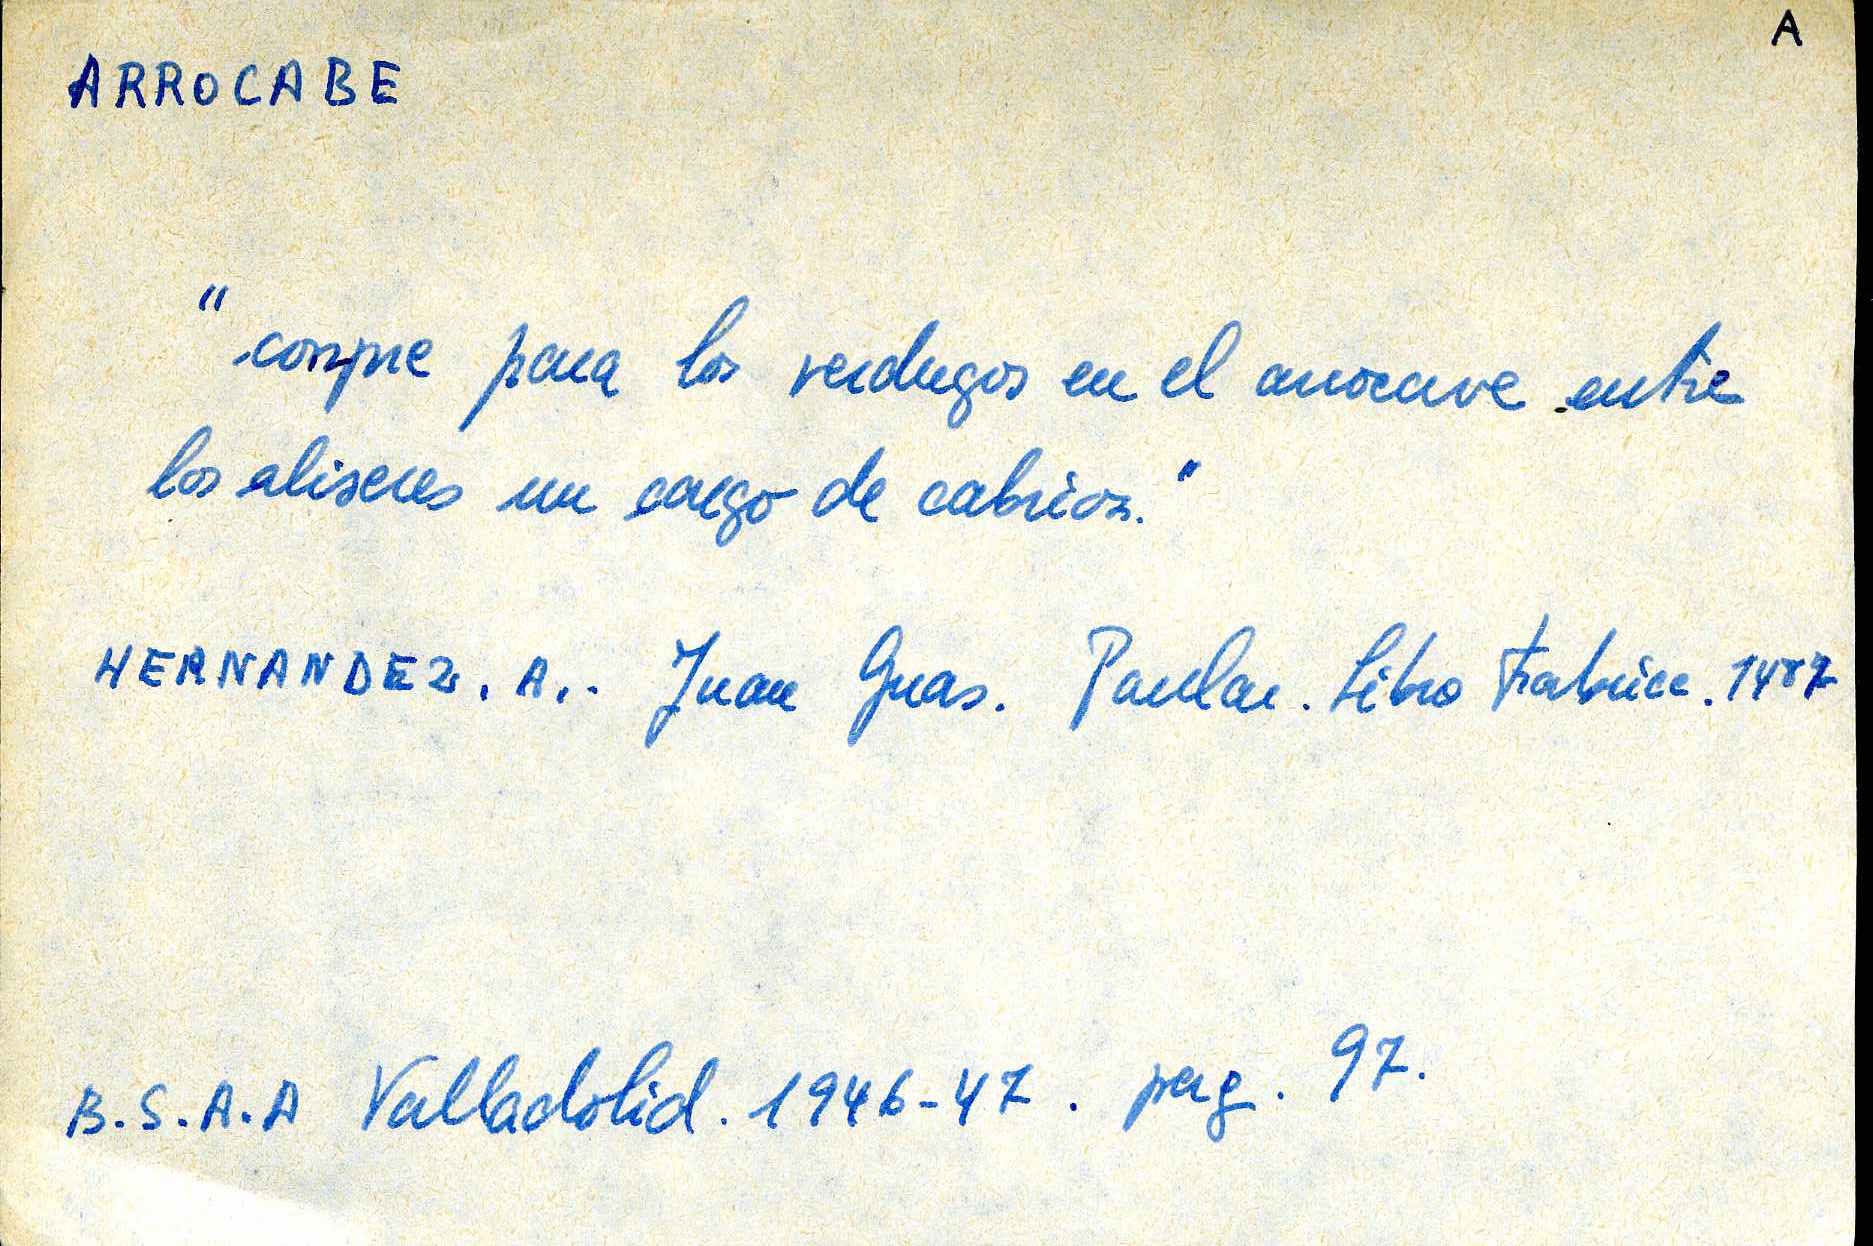 A
ARROCABE
"compre para los verdugos en el arrocave entre
los aliseres un cargo de cabrios."
HERNANDEZ. A.. Juan Guas. Paular. Libro Fabrica. 1487
B.S.A.A Valladolid. 1946-47. pag. 97.